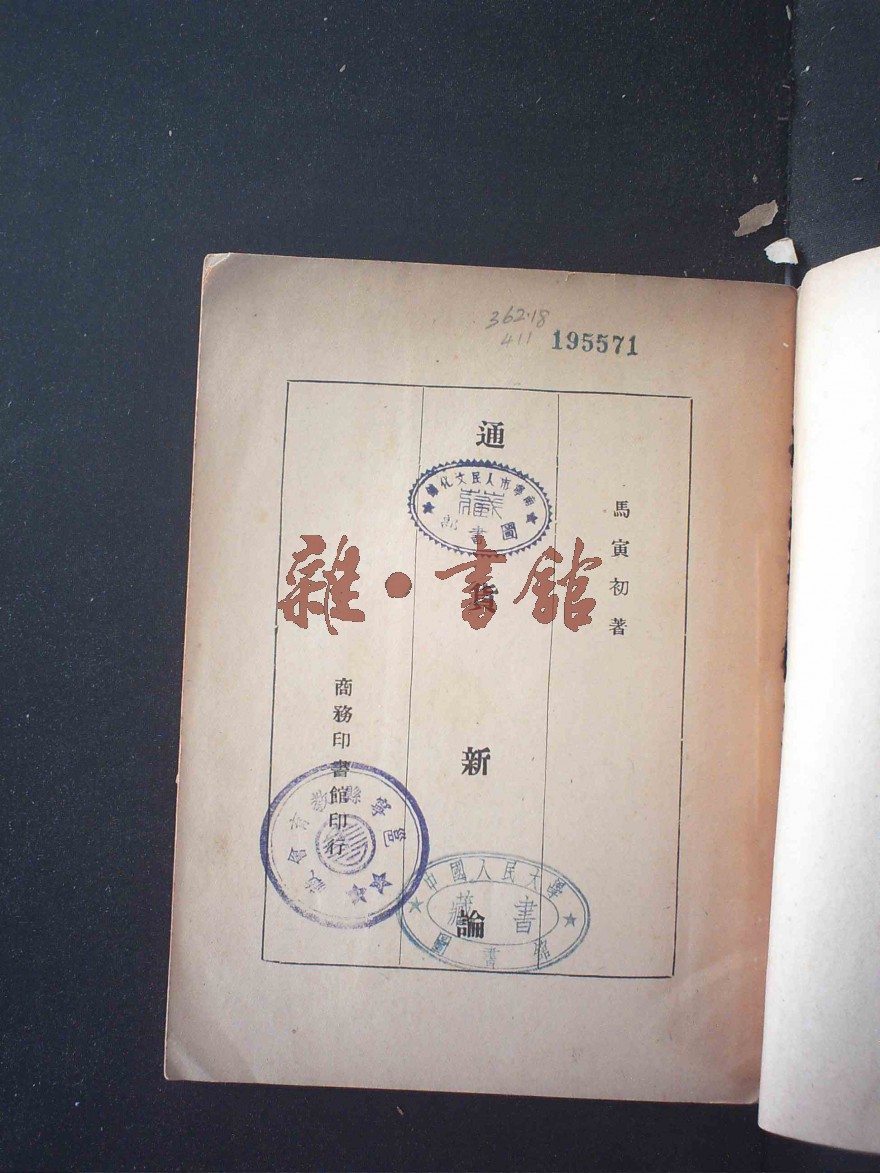 362.18
411
195571
馬寅初著
通貨新論
商務印書館印行
南寧市人民文化館
圖書部
藏
雜·書館
邕寧縣教育會
中國人民大學
圖書館
藏書